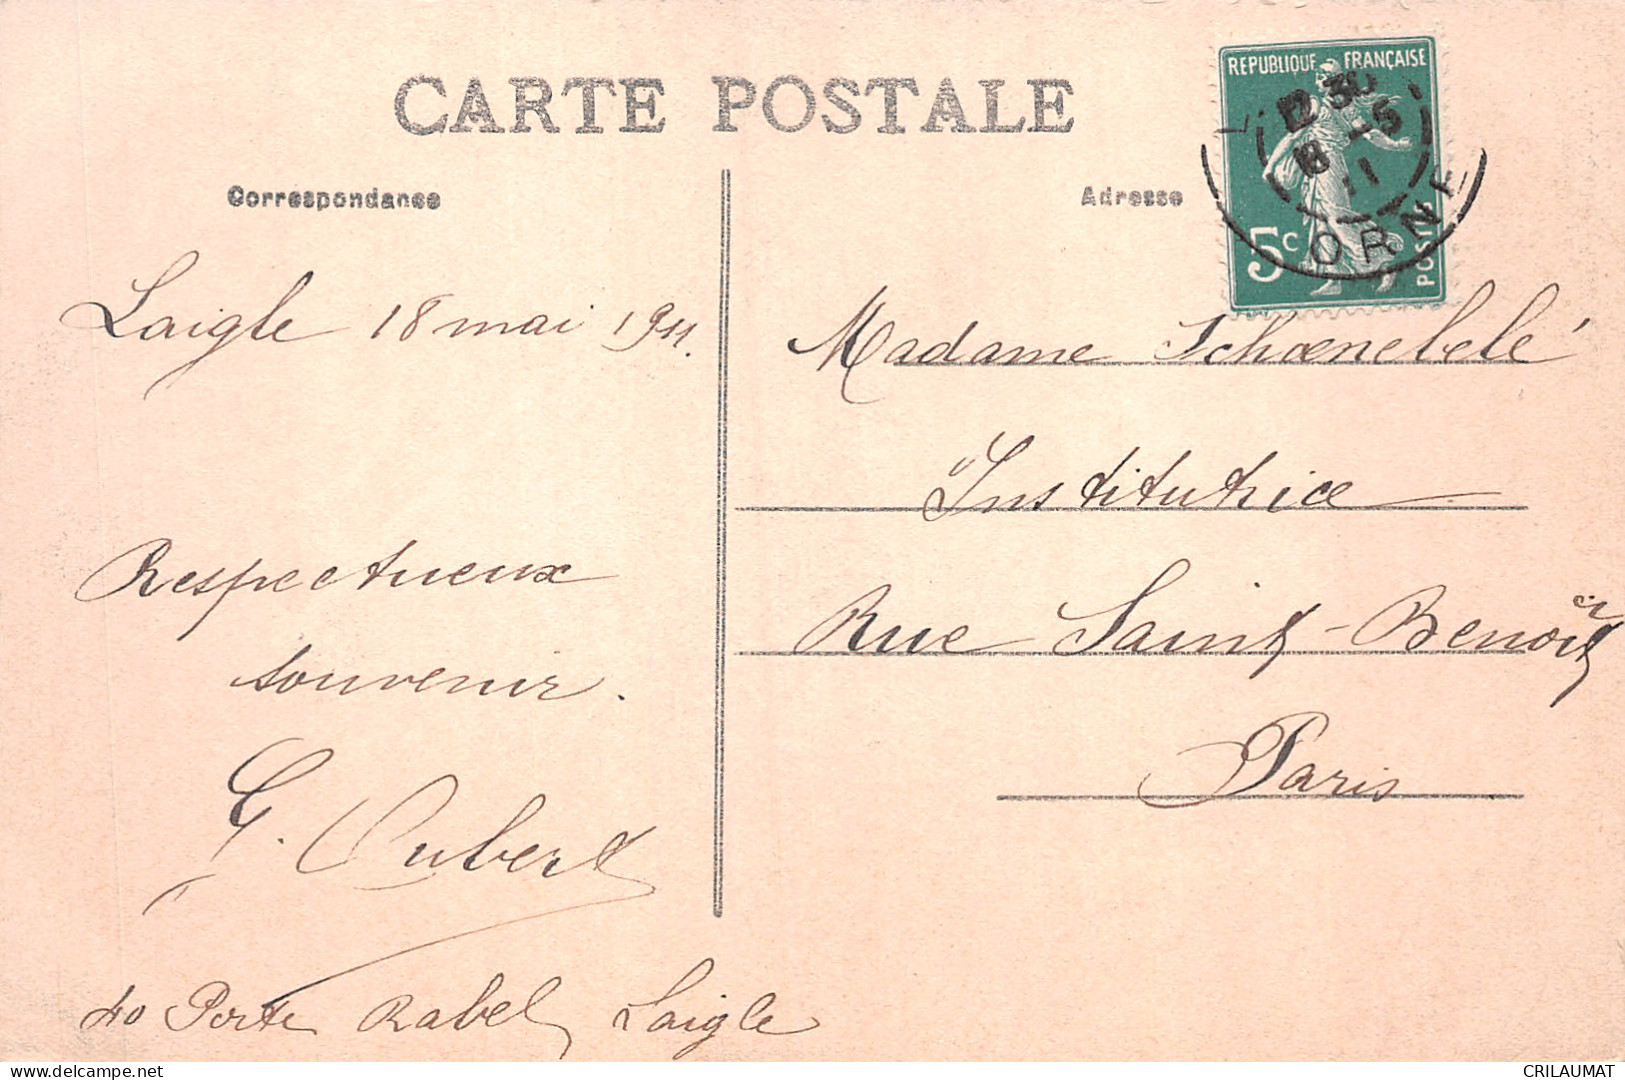 CARTE POSTALE
Correspondance
Adresse
REPUBLIQUE FRANÇAISE
5c
POSTES
12 30
18 -5
11
ORNE
Laigle 18 mai 1911.
Respectueux
souvenir.
G. Aubert
40 Porte Rabel Laigle
Madame Schœnebelé
Institutrice
Rue Saint-Benoît
Paris
delcampe.net
CRILAUMAT